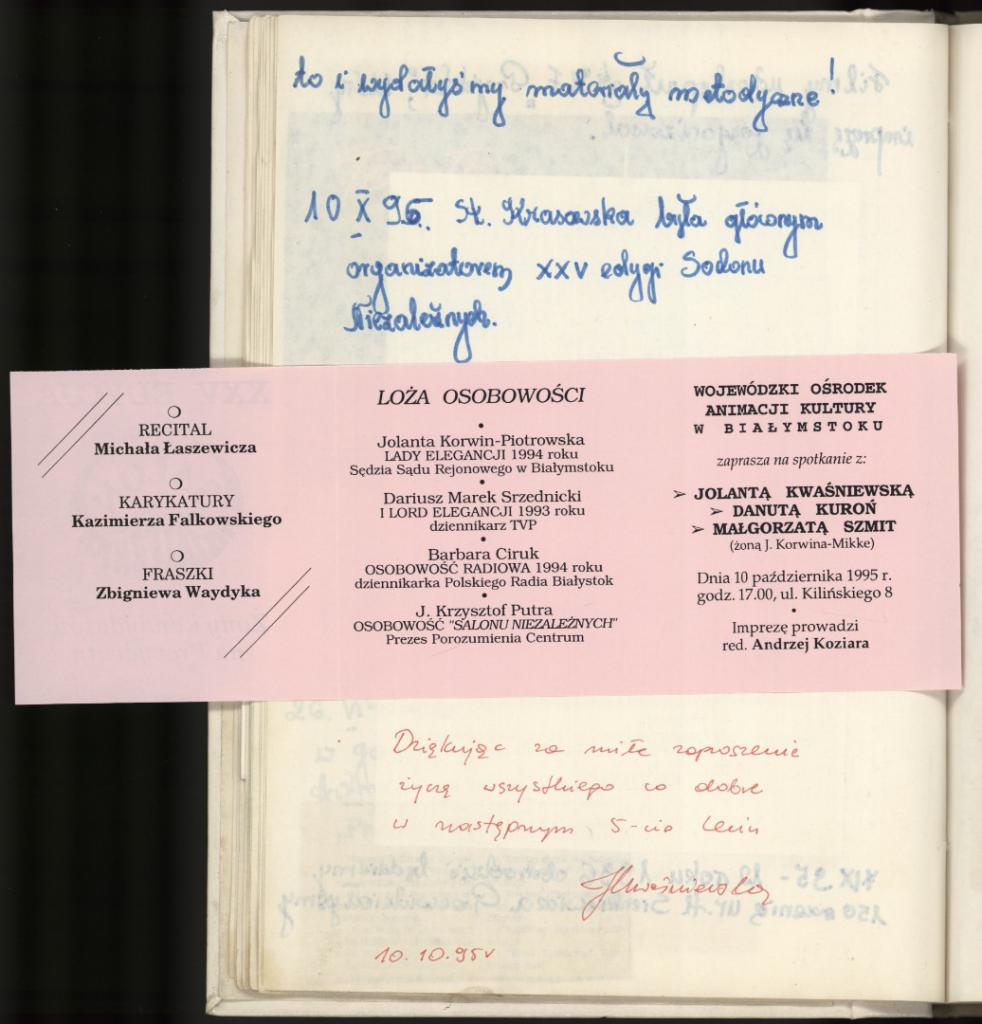 to i wydałyśmy materiały metodyczne!
10 X 95. St. Krasowska była głównym
organizatorem XXV edycji Salonu
Niezależnych.
RECITAL
Michała Łaszewicza
KARYKATURY
Kazimierza Falkowskiego
FRASZKI
Zbigniewa Waydyka
LOŻA OSOBOWOŚCI
•
Jolanta Korwin-Piotrowska
LADY ELEGANCJI 1994 roku
Sędzia Sądu Rejonowego w Białymstoku
•
Dariusz Marek Srzednicki
I LORD ELEGANCJI 1993 roku
dziennikarz TVP
•
Barbara Ciruk
OSOBOWOŚĆ RADIOWA 1994 roku
dziennikarka Polskiego Radia Białystok
•
J. Krzysztof Putra
OSOBOWOŚĆ "SALONU NIEZALEŻNYCH"
Prezes Porozumienia Centrum
WOJEWÓDZKI OŚRODEK
ANIMACJI KULTURY
W BIAŁYMSTOKU
zaprasza na spotkanie z:
➢ JOLANTĄ KWAŚNIEWSKĄ
➢ DANUTĄ KUROŃ
➢ MAŁGORZATĄ SZMIT
(żoną J. Korwina-Mikke)
Dnia 10 października 1995 r.
godz. 17.00, ul. Kilińskiego 8
•
Imprezę prowadzi
red. Andrzej Koziara
Dziękując za miłe zaproszenie
życzę wszystkiego co dobre
w następnym 5-cio leciu
JKwaśniewska
10.10.95r